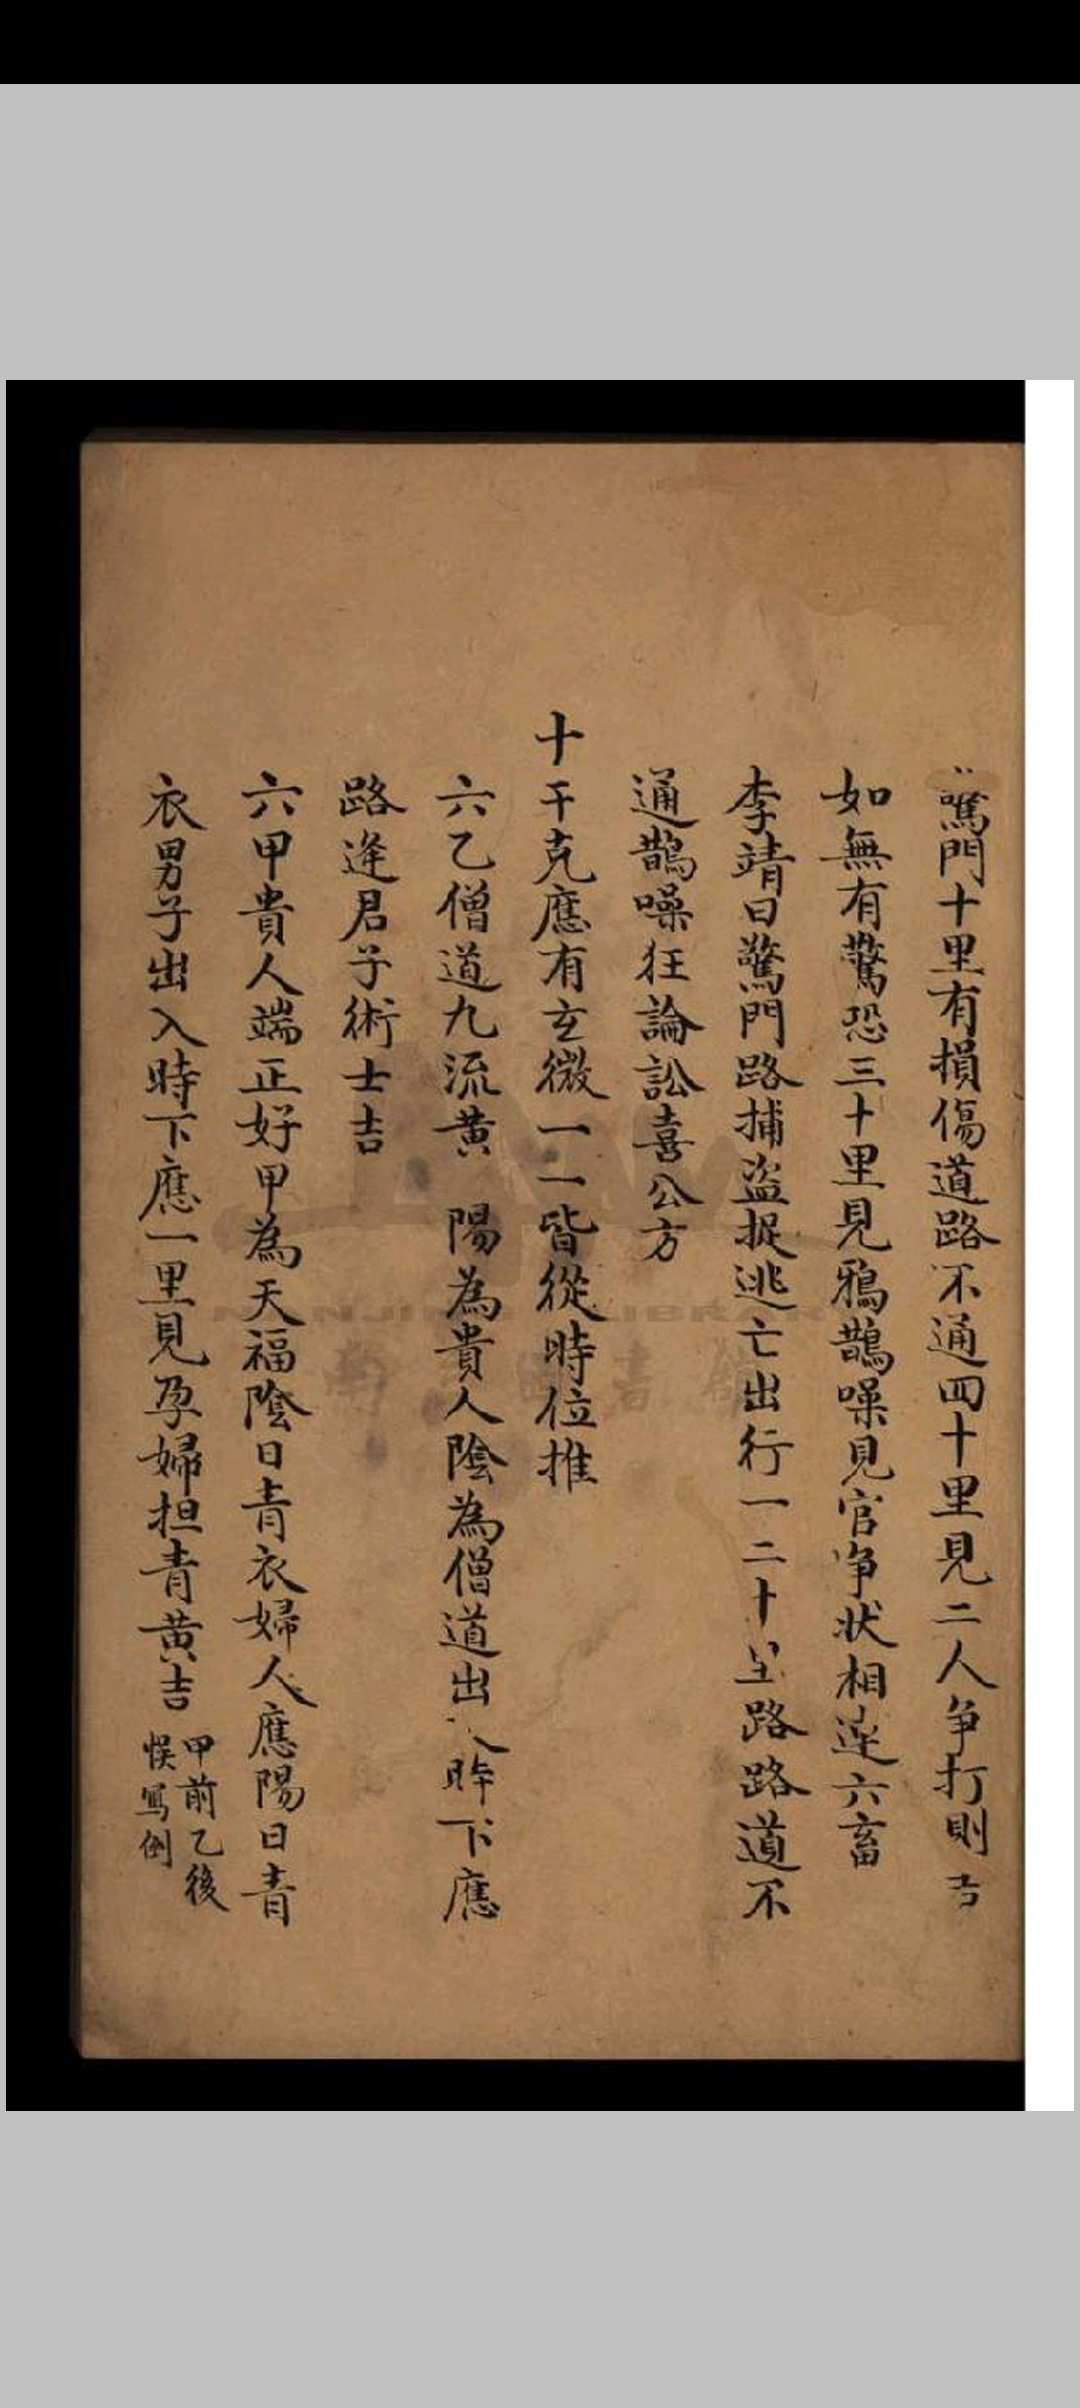 驚門十里有損傷道路不通四十里見二人争打則吉
如無有驚恐三十里見鴉鵲噪見官争状相逆六畜
李靖曰驚門路捕盗捉逃亡出行一二十里路路道不
通鵲噪狂論訟喜公方
十干克應有玄微一一皆從時位推
六乙僧道九流黄 陽為貴人陰為僧道出入時下應
路逢君子術士吉
六甲貴人端正好甲為天福陰日青衣婦人應陽日青
衣男子出入時下應一里見孕婦担青黄吉
甲前乙後
悮寫倒
NANJING LIBRARY
南 圖書館